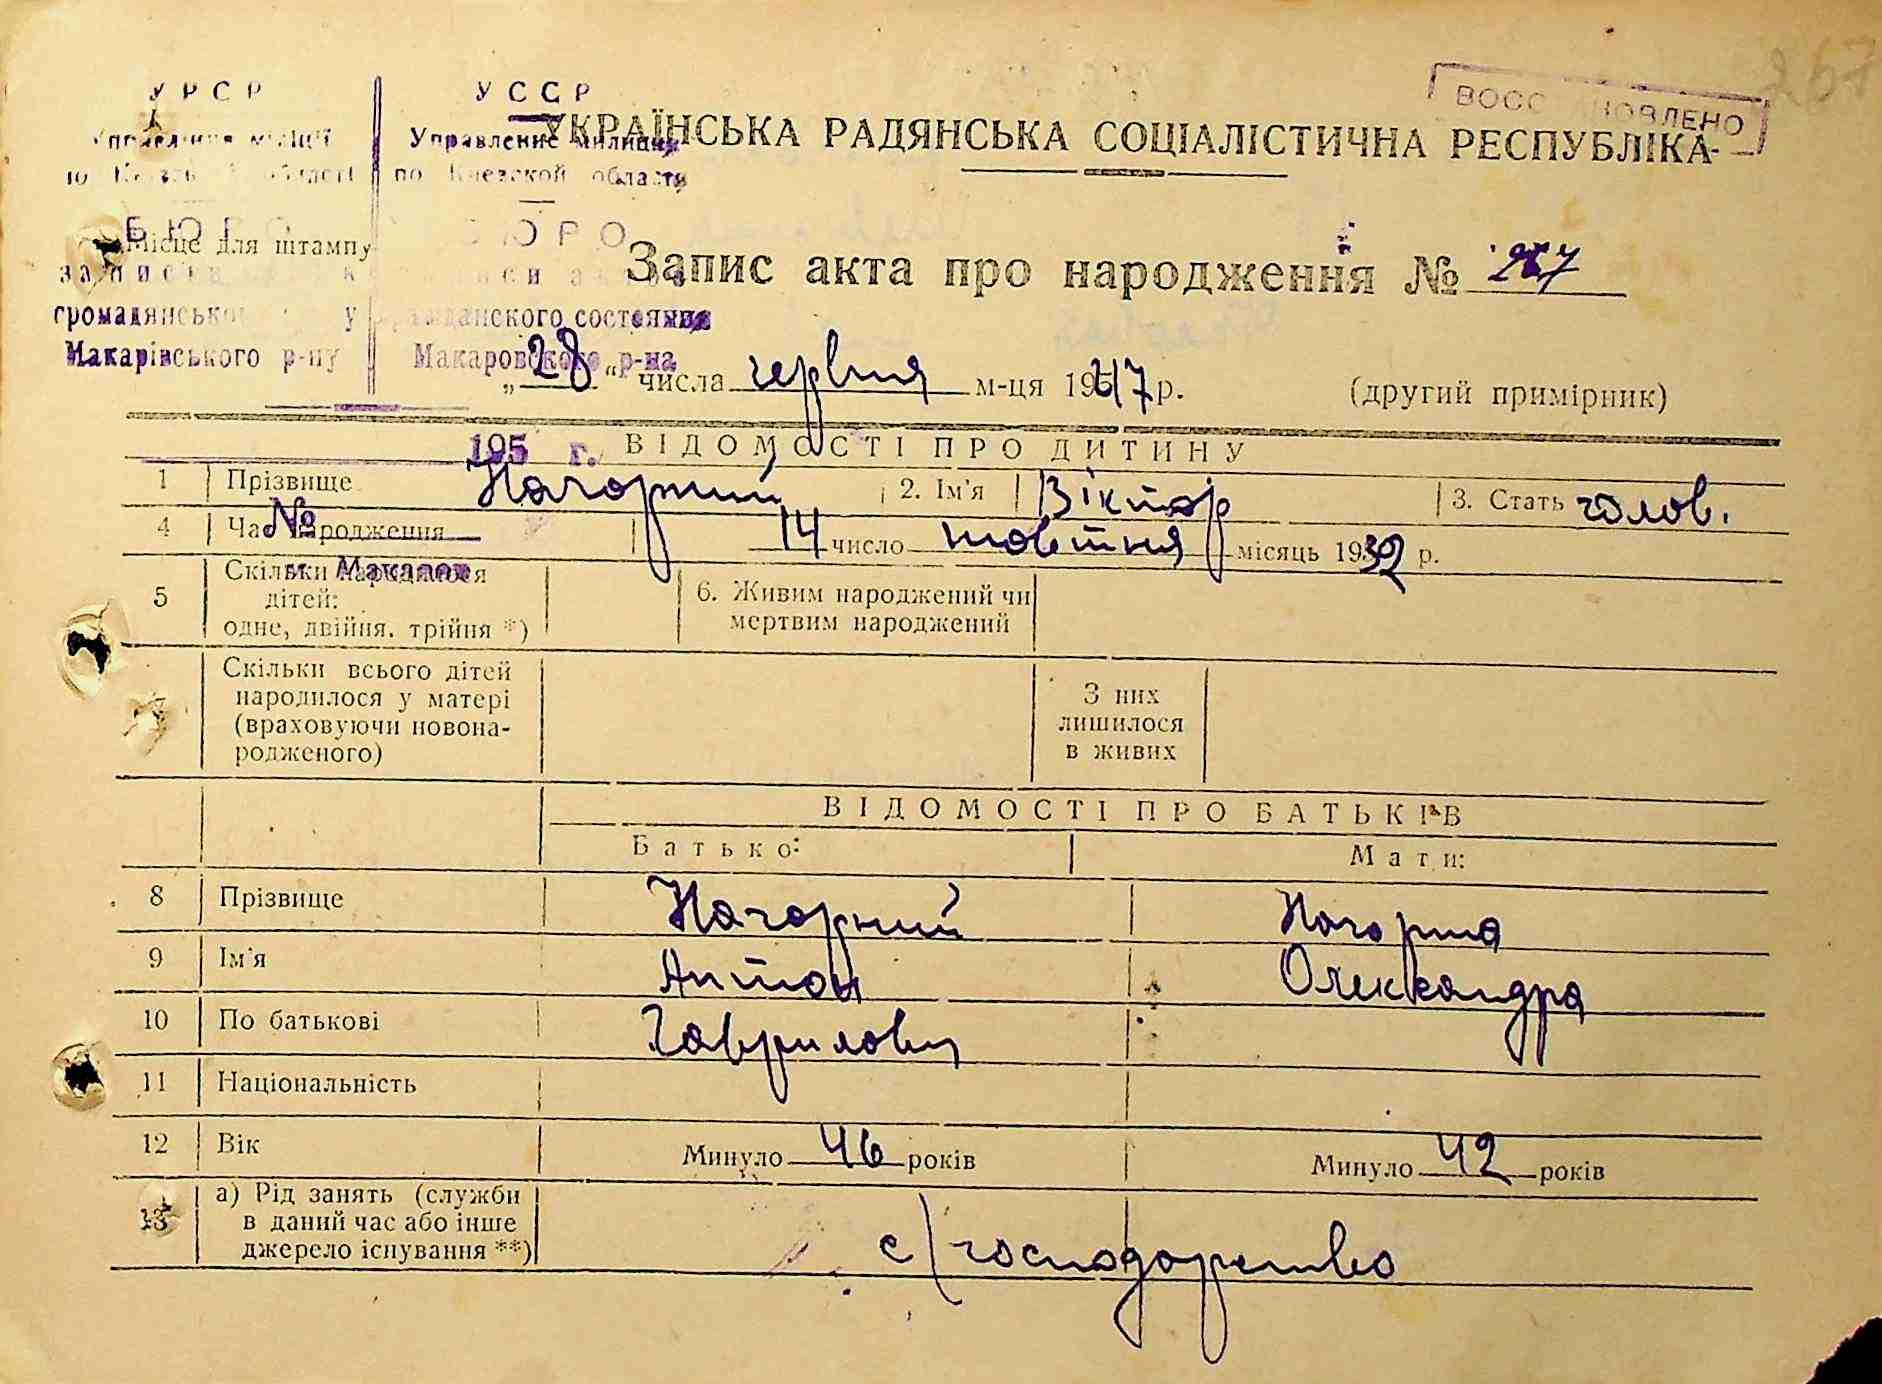 УРСР УССР
Управління міліції Управление милиции
по Київській області по Киевской области
БЮРО БЮРО
ВОССТАНОВЛЕНО
267
УКРАЇНСЬКА РАДЯНСЬКА СОЦІАЛІСТИЧНА РЕСПУБЛІКА
Місце для штампу
громадянського у гражданского состояния
Макарівського р-ну Макаровского р-на
Запис акта про народження № 267
„28“ числа червня м-ця 1947 р. (другий примірник)
195 г.
ВІДОМОСТІ ПРО ДИТИНУ
1 Прізвище Нагорний 2. Ім'я Віктор 3. Стать чолов.
№
4 Час народження 14 число жовтня місяць 1932 р.
м. Макаров
5 Скільки народилося дітей: одне, двійня, трійня *) 6. Живим народжений чи мертвим народжений
Скільки всього дітей народилося у матері (враховуючи новонародженого) З них лишилося в живих
ВІДОМОСТІ ПРО БАТЬКІВ
Батько: Мати:
8 Прізвище Нагорний Нагорна
9 Ім'я Антон Олександра
10 По батькові Гаврилович
11 Національність
12 Вік Минуло 46 років Минуло 42 років
13 а) Рід занять (служби в даний час або інше джерело існування **) с/господарство